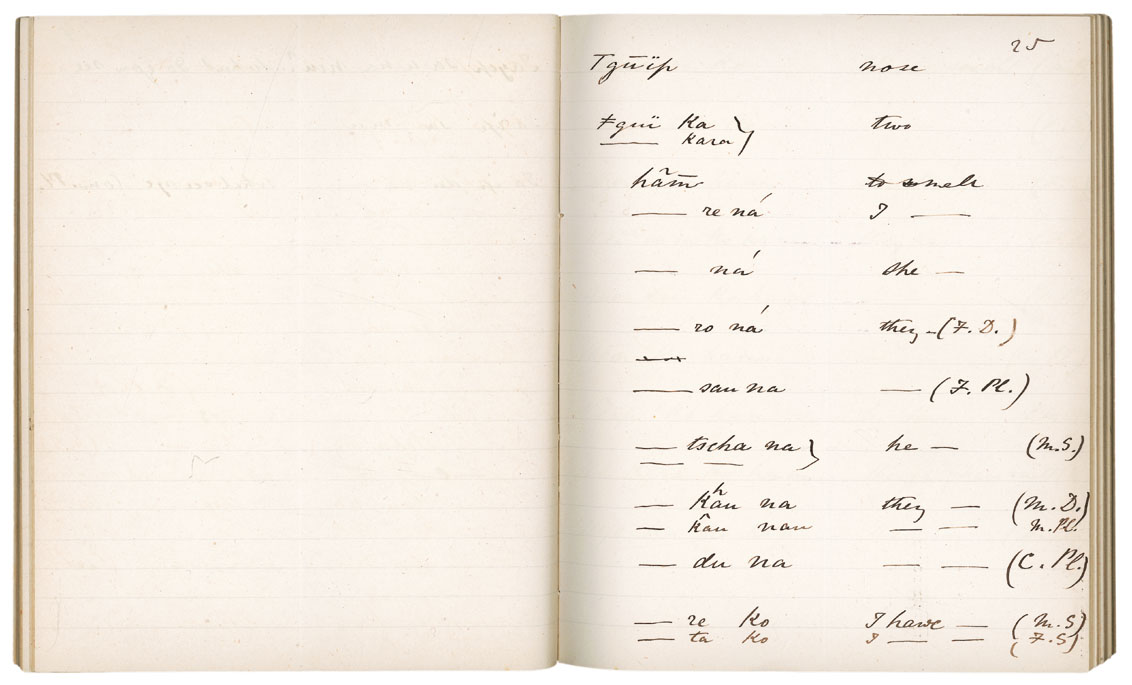 25
Tgūïp nose
ǂguï Ka } two
—— kara }
hãm to smell
—— re ná I ——
—— ná she —
—— ro ná they – (F. D.)
—— sau na — (F. Pl.)
— tscha na } he — (m. S.)
— Kãu na they — (m. D.)
— kãu nau — — m. Pl.
— du na — — (C. Pl.)
— re Ko I have — (m. S)
— ta Ko I — — (F. S)